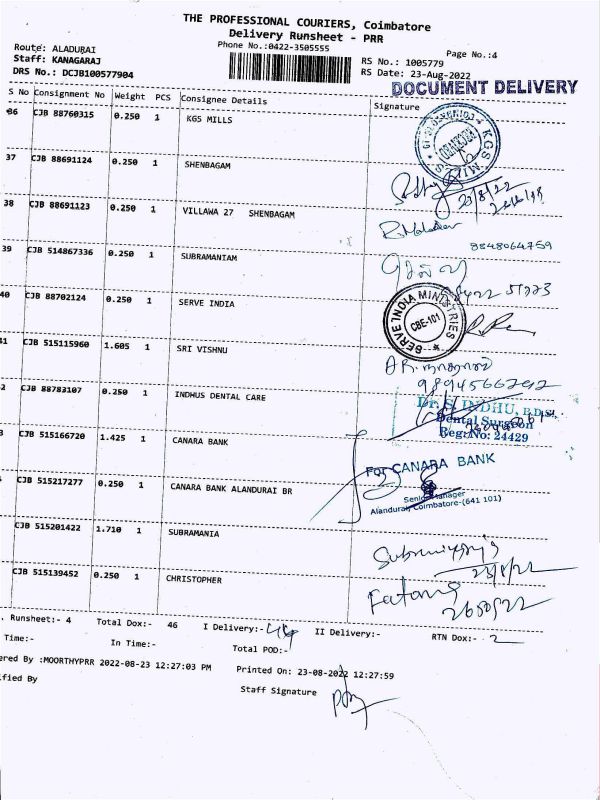 THE PROFESSIONAL COURIERS, Coimbatore
Delivery Runsheet - PRR
Phone No.:0422-3505555
Page No.:4
Route: ALADURAI
Staff: KANAGARAJ
DRS No.: DCJB100577904
RS No.: 1005779
RS Date: 23-Aug-2022
DOCUMENT DELIVERY
S No Consignment No Weight PCS Consignee Details Signature
36 CJB 88760315 0.250 1 KGS MILLS
KGS MILLS
37 CJB 88691124 0.250 1 SHENBAGAM
23/8/22
38 CJB 88691123 0.250 1 VILLAWA 27 SHENBAGAM
8848064759
39 CJB 514867336 0.250 1 SUBRAMANIAM
40 CJB 88702124 0.250 1 SERVE INDIA
SERVE INDIA MINISTRIES
CBE-101
41 CJB 515115960 1.605 1 SRI VISHNU
9894566292
2 CJB 88783107 0.250 1 INDHUS DENTAL CARE
Dr. S. INDHU, B.D.S.,
Dental Surgeon
Reg: No: 24429
3 CJB 515166720 1.425 1 CANARA BANK
For CANARA BANK
CJB 515217277 0.250 1 CANARA BANK ALANDURAI BR
Senior Manager
Alandurai, Coimbatore-(641 101)
CJB 515201422 1.710 1 SUBRAMANIA
23/8/22
CJB 515139452 0.250 1 CHRISTOPHER
. Runsheet:- 4 Total Dox:- 46 I Delivery:- 44 II Delivery:- RTN Dox:- 2
Time:- In Time:- Total POD:-
ered By :MOORTHYPRR 2022-08-23 12:27:03 PM Printed On: 23-08-2022 12:27:59
ified By Staff Signature